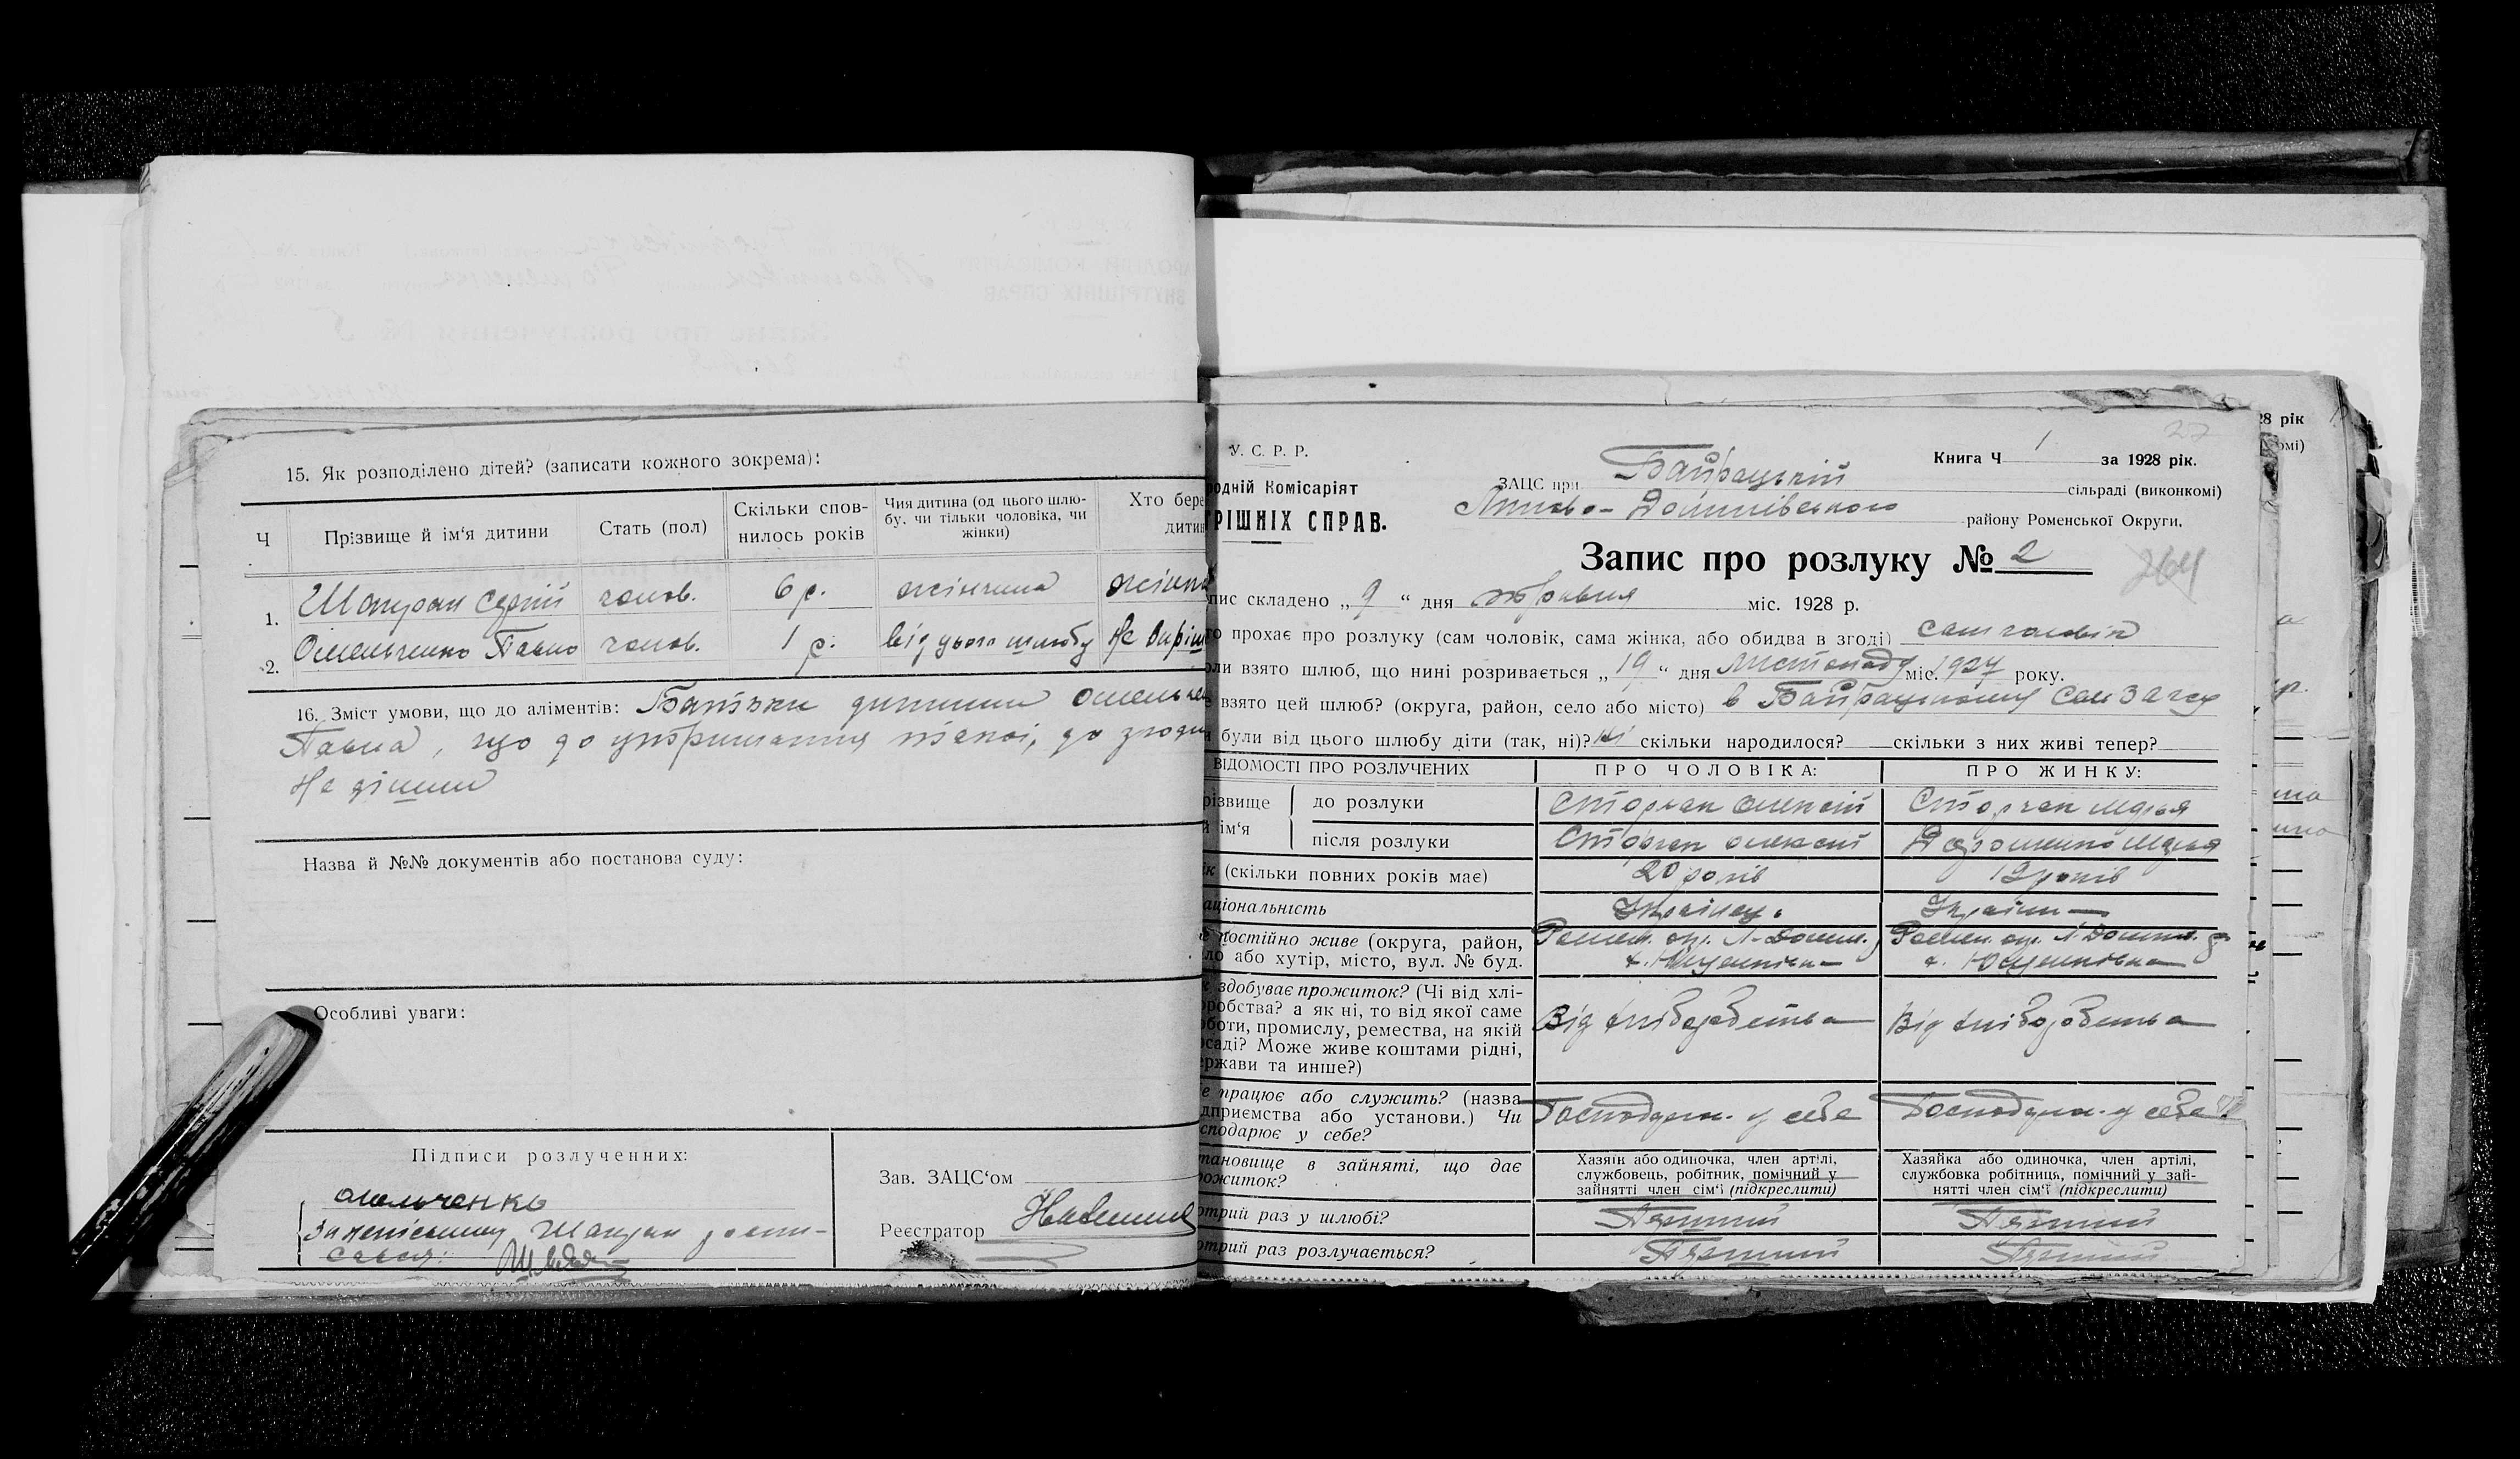 15. Як розподілено дітей? (записати кожного зокрема):
Ч
Прізвище й ім'я дитини
Стать (пол)
Скільки спов-
нилось років
Чия дитина (од цього шлю-
бу, чи тільки чоловіка, чи
жінки)
Хто бере
дитин
1. Шапран Сергій чолов. 6 р. жінчина жінка
2. Омельченко Павло чолов. 1 р. від цього шлюбу Не виріш
16. Зміст умови, що до аліментів: Батьки дитини Омельчен
Павла, що до утримання такої, до згоди
Не дішли
Назва й №№ документів або постанова суду:
Особливі уваги:
Підписи розлученних:
Омельченко
За неписьмену Шапран розпи-
сався:
Зав. ЗАЦС'ом
Реєстратор
У. С. Р. Р.
родній Комісаріят
РІШНІХ СПРАВ.
27
Книга Ч 1 за 1928 рік.
ЗАЦС при Байрацькій сільраді (виконкомі)
Липово-Долинівського району Роменської Округи.
Запис про розлуку № 2
264
пис складено „9“ дня травня міс. 1928 р.
то прохає про розлуку (сам чоловік, сама жінка, або обидва в згоді) сам чоловік
оли взято шлюб, що нині розривається „19“ дня Листопаду міс. 1927 року.
взято цей шлюб? (округа, район, село або місто) в Байрацькому
и були від цього шлюбу діти (так, ні)? Ні скільки народилося? скільки з них живі тепер?
ВІДОМОСТІ ПРО РОЗЛУЧЕНИХ
ПРО ЧОЛОВІКА:
ПРО ЖИНКУ:
різвище
й ім'я
до розлуки Сторчак Олексій Сторчак Марья
після розлуки Сторчак Олексій Марья
ік (скільки повних років має) 20 років 19 років
аціональність Українець Україн
е постійно живе (округа, район,
ло або хутір, місто, вул. № буд.
Ромен. окр. Л-Долин. р
х.
Ромен. окр. Л-Долин. р
х.
к здобуває прожиток? (Чі від хлі-
оробства? а як ні, то від якої саме
оботи, промислу, ремества, на якій
осаді? Може живе коштами рідні,
ержави та инше?)
Від хліборобства
Від хліборобства
е працює або служить? (назва
дприємства або установи.) Чи
сподарює у себе?
Господарює у себе
Господарює у себе
тановище в зайняті, що дає
рожиток?
Хазяїн або одиночка, член артілі,
службовець, робітник, помічний у
зайнятті член сім'ї (підкреслити)
Хазяйка або одиночка, член артілі,
службовка робітниця, помічний у зай-
нятті член сім'ї (підкреслити)
отрий раз у шлюбі? Перший Перший
отрий раз розлучається? Перший Перший
28 рік
омі)